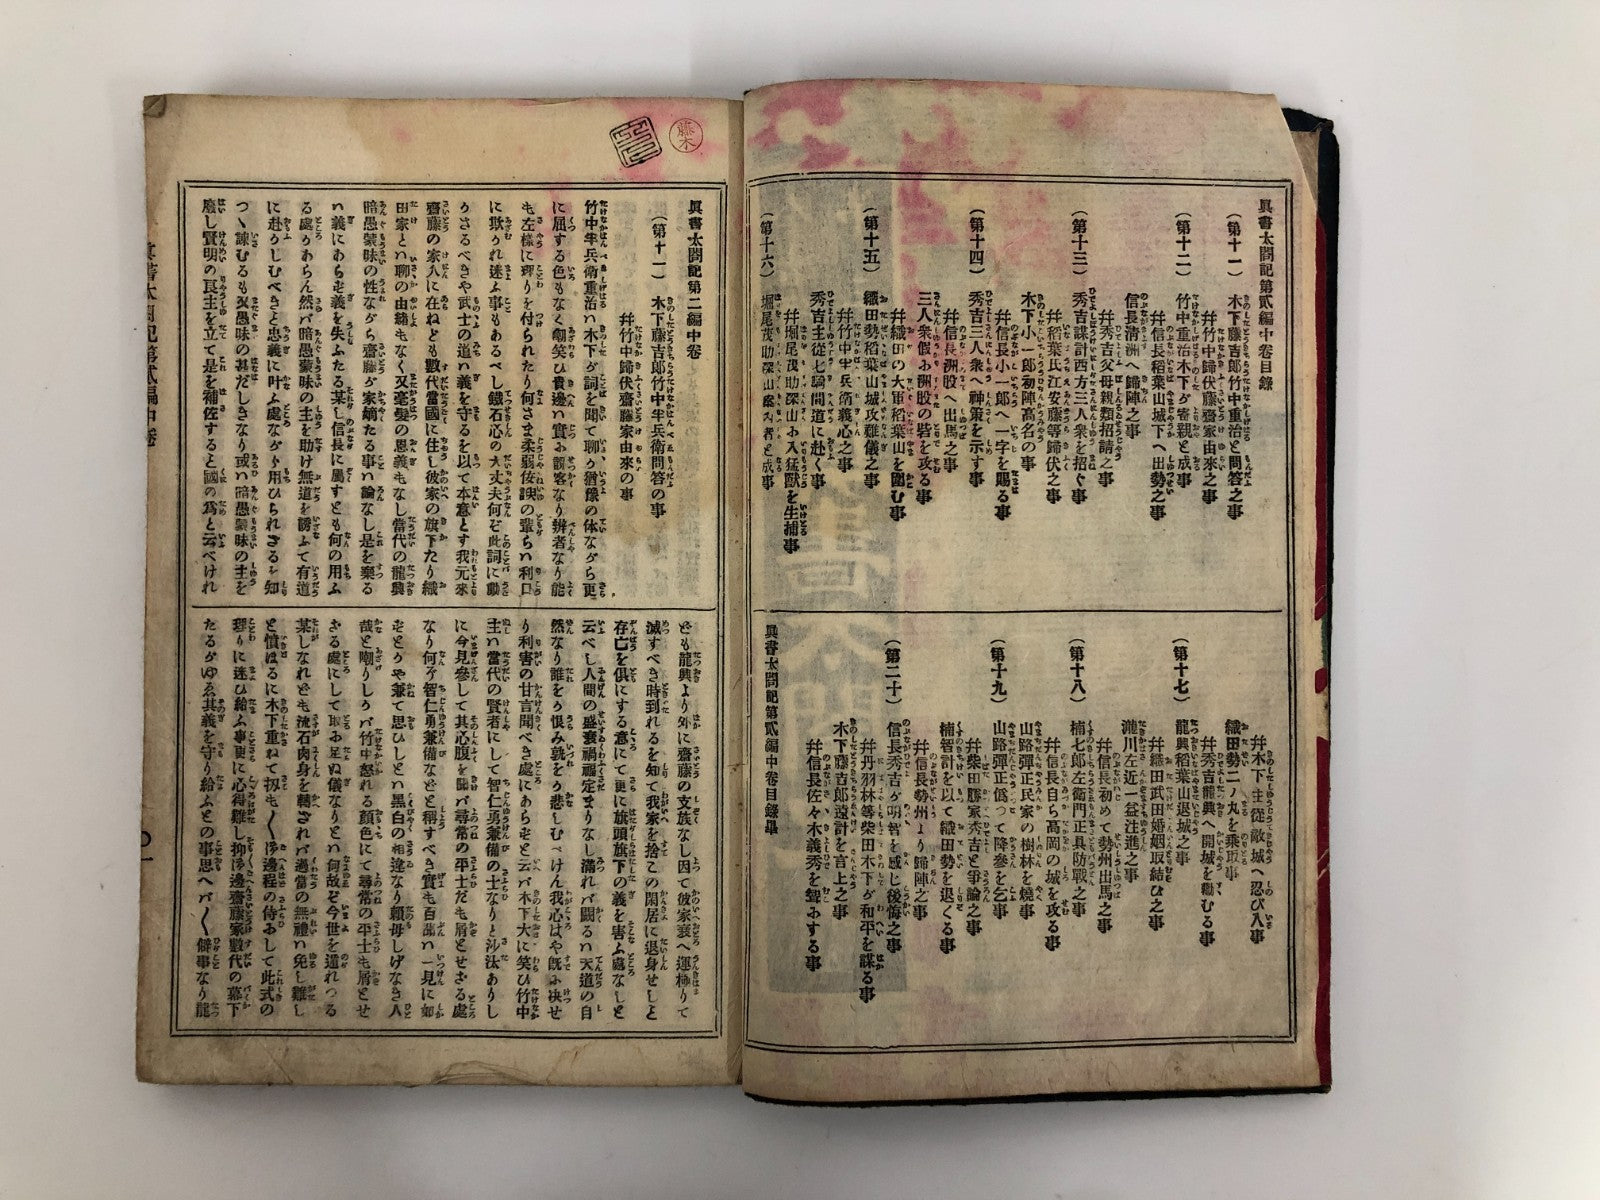 眞書太閤記第貳編中卷目錄
(第十一)
木下藤吉郎竹中重治と問答之事
幷竹中歸伏齋藤家由來之事
(第十二)
竹中重治木下が寄親と成事
幷信長稻葉山城下へ出勢之事
信長淸洲へ歸陣之事
(第十三)
幷秀吉父母親類招請之事
秀吉謀計西方三人衆を招ぐ事
幷稻葉氏江安藤等歸伏之事
木下小一郎初陣高名の事
幷信長小一郎へ一字を賜る事
(第十四)
秀吉三人衆へ神策を示す事
幷信長洲股へ出馬之事
三人衆假に洲股の砦を攻る事
幷織田の大軍稻葉山を圍む事
(第十五)
織田勢稻葉山城攻難儀之事
幷竹中半兵衛義心之事
秀吉主從七騎間道に赴く事
幷堀尾茂助深山に入猛獸を生捕事
(第十六)
堀尾茂助深山案内者と成事
幷木下主從敵城へ忍び入事
織田勢二ノ丸を乘取事
幷秀吉龍興へ開城を勸むる事
(第十七)
龍興稻葉山退城之事
幷織田武田婚姻取結び之事
瀧川左近一益注進之事
幷信長初めて勢州出馬之事
(第十八)
楠七郎左衛門正具防戰之事
幷信長自ら高岡の城を攻る事
山路彈正民家の樹林を燒事
(第十九)
山路彈正僞つて降參を乞事
幷柴田勝家秀吉と爭論之事
楠智計を以て織田勢を退くる事
幷信長勢州より歸陣之事
(第二十)
信長秀吉が明智を感じ後悔之事
幷丹羽林等柴田木下が和平を謀る事
木下藤吉郎遠計を言上之事
幷信長佐々木義秀を聟にする事
眞書太閤記第貳編中卷目錄畢
藤木
眞書太閤記第二編中卷
(第十一) 木下藤吉郎竹中半兵衛問答の事
幷竹中歸伏齋藤家由來の事
竹中半兵衛重治ハ木下が詞を聞て聊か猶豫の体ながら更
に屈する色もなく嘲笑ひ貴邊ハ實に說客なり辨者なり能
も左樣に理りを付られたり何さま柔弱佞諛の輩らハ利口
に欺かれ迷ふ事もあるべし鐵石心の大丈夫何ぞ此詞に動
かさるべきや武士の道ハ義を守るを以て本意とす我元來
齋藤の家人に在ねども數代當國に住し彼家の旗下たり織
田家とハ聊の由緖もなく又毫髮の恩義もなし當代の龍興
暗愚蒙昧の性ながら齋藤が家嫡たる事ハ論なし是を棄る
ハ義にあらず義を失ふたる某し信長に屬すとも何の用ふ
る處あらん然バ暗愚蒙昧の主を助け無道を誘ふて有道
に赴かしむべきこと忠義に叶ふ處ながら用ひられざるを知
つゝ諫むるも又愚昧の甚だしきなり或ハ暗愚蒙昧の主を
廢し賢明の良主を立て是を補佐すること國の爲と云べけれ
ども龍興より外に齋藤の支族なし因て彼家衰へ運極りて
滅すべき時到れるを知て我家を捨この閑居に退身せしと
存亡を俱にする意にて更に旗頭旗下の義を害ふ處なしと
云べし人間の盛衰禍福定まりなし滿れバ闕るハ天道の自
然なり誰をか恨み孰をか悲しむべけん我心はや旣に决せ
り利害の甘言聞べき處にあらずと云バ木下大に笑ひ竹中
主ハ當代の賢者にして智仁勇兼備の士なりと沙汰ありし
に今見參して其心腹を聞バ尋常の平士だも屑とせざる處
なり何ぞ智仁勇兼備などと稱すべき實も百聞ハ一見に如
ずとかや兼て思ひしとハ黑白の相違なり賴母しげなき人
哉と嘲りしかバ竹中怒れる顏色にて尋常の平士も屑とせ
ざる處にして取に足ぬ儀なりとハ何故ぞ今世を遁れつる
某しなれども流石肉身を轉されバ過當の無禮ハ免し難し
と憤はるに木下重ねて扨も〳〵御邊程の侍にして此式の
理りに迷ひ給ふ事更に心得難し抑御邊齋藤家數代の幕下
たるがゆゑ其義を守り給ふとの事思へバ〳〵僻事なり龍
眞書太閤記第貳編中卷